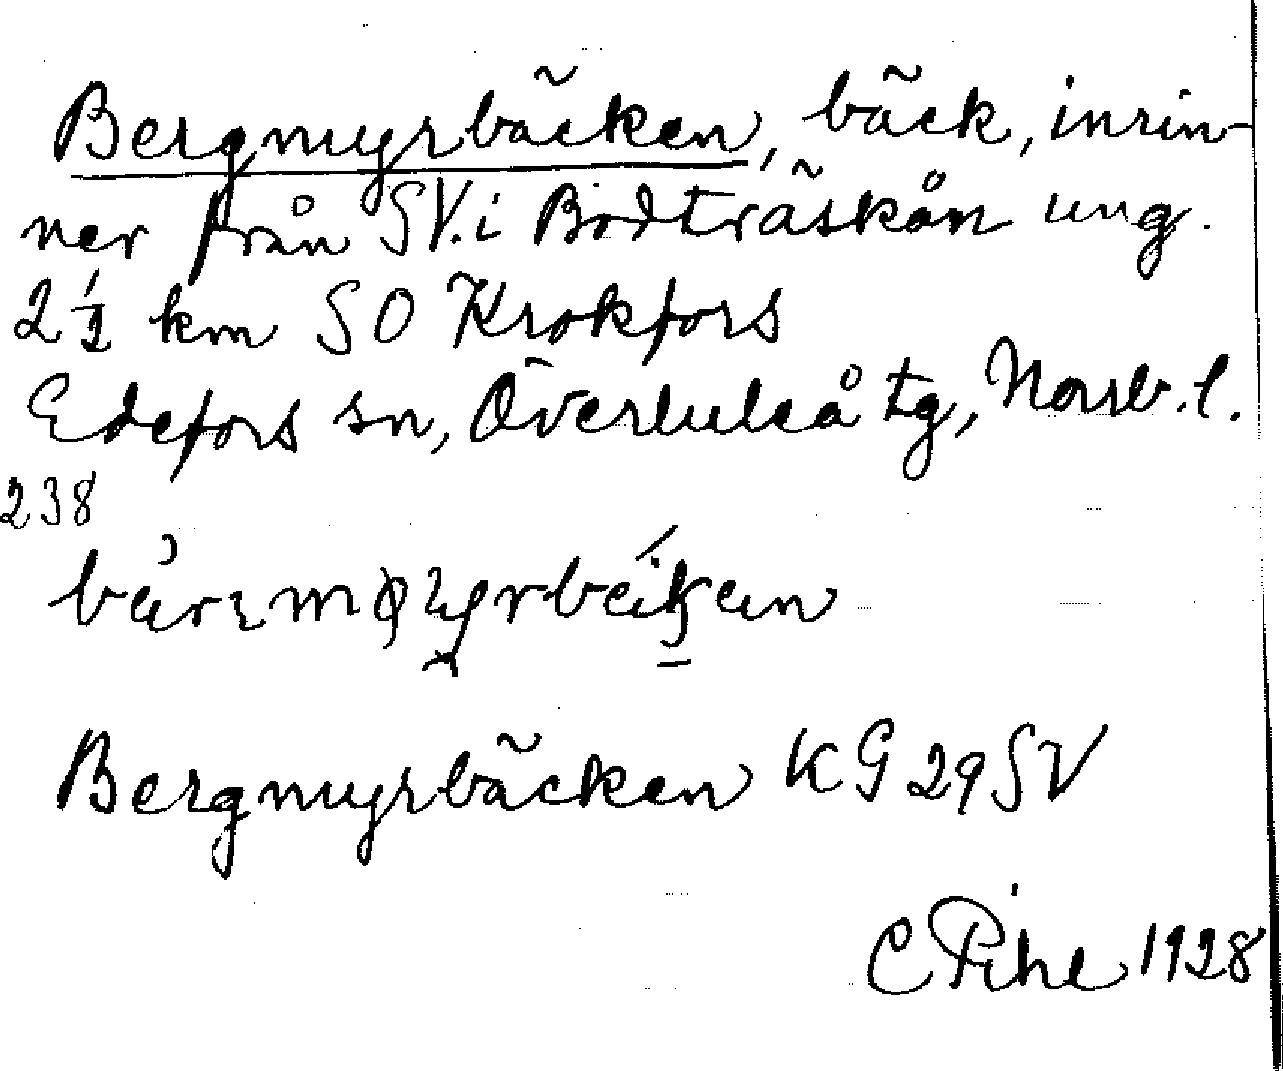 Bergmyrbäcken, bäck, inrin-
ner från SV. i Bodträskån ung.
2 1/2 km SO Krokfors
Edefors sn, Överluleå tg, Norrb. l.
238
Bergmyrbäcken KG 29 SV
C Pihl 1928